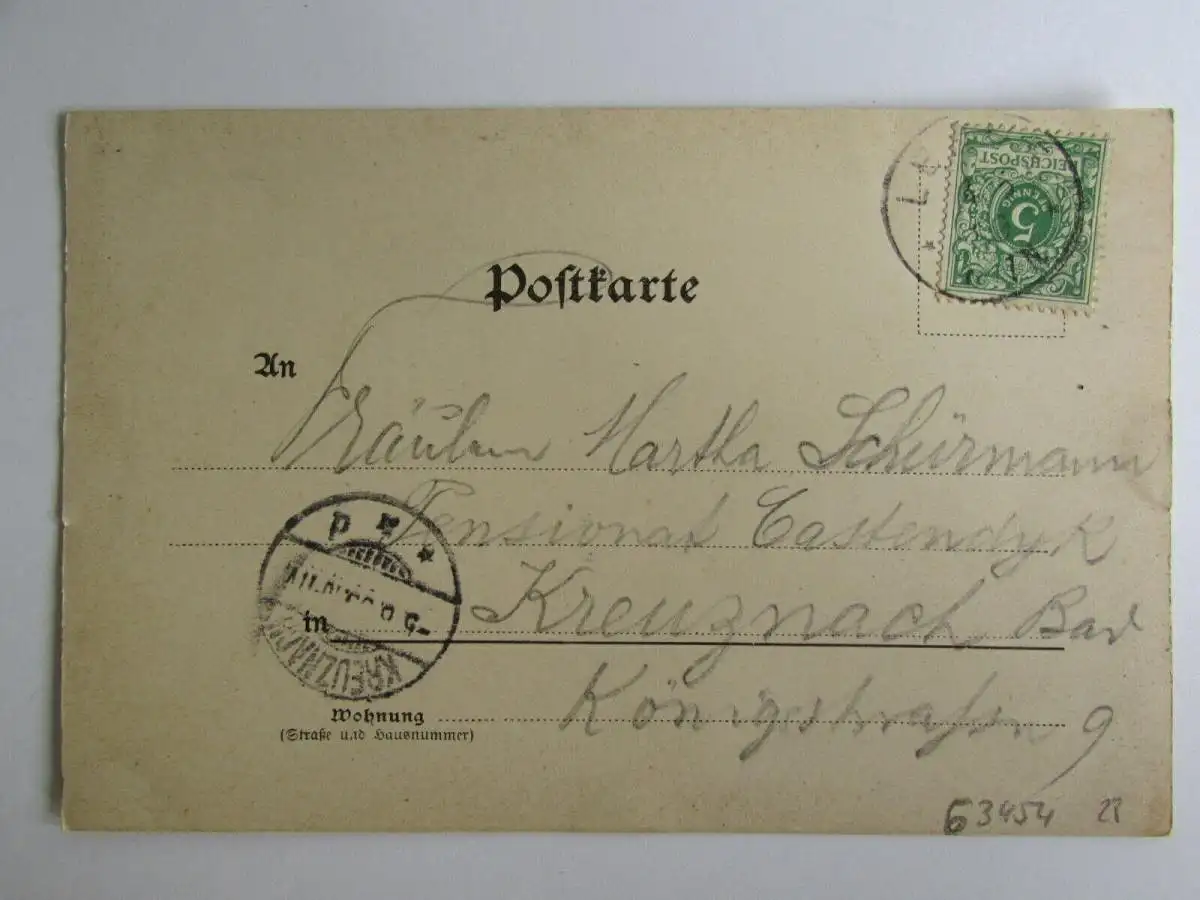 REICHSPOST
5
PFENNIG
Postkarte
An
Fräulein Martha Schürmann
Pensionat Castendyk
in Kreuznach Bad
KREUZNACH
Wohnung
(Straße und Hausnummer)
Königsstraße 9
63454 22